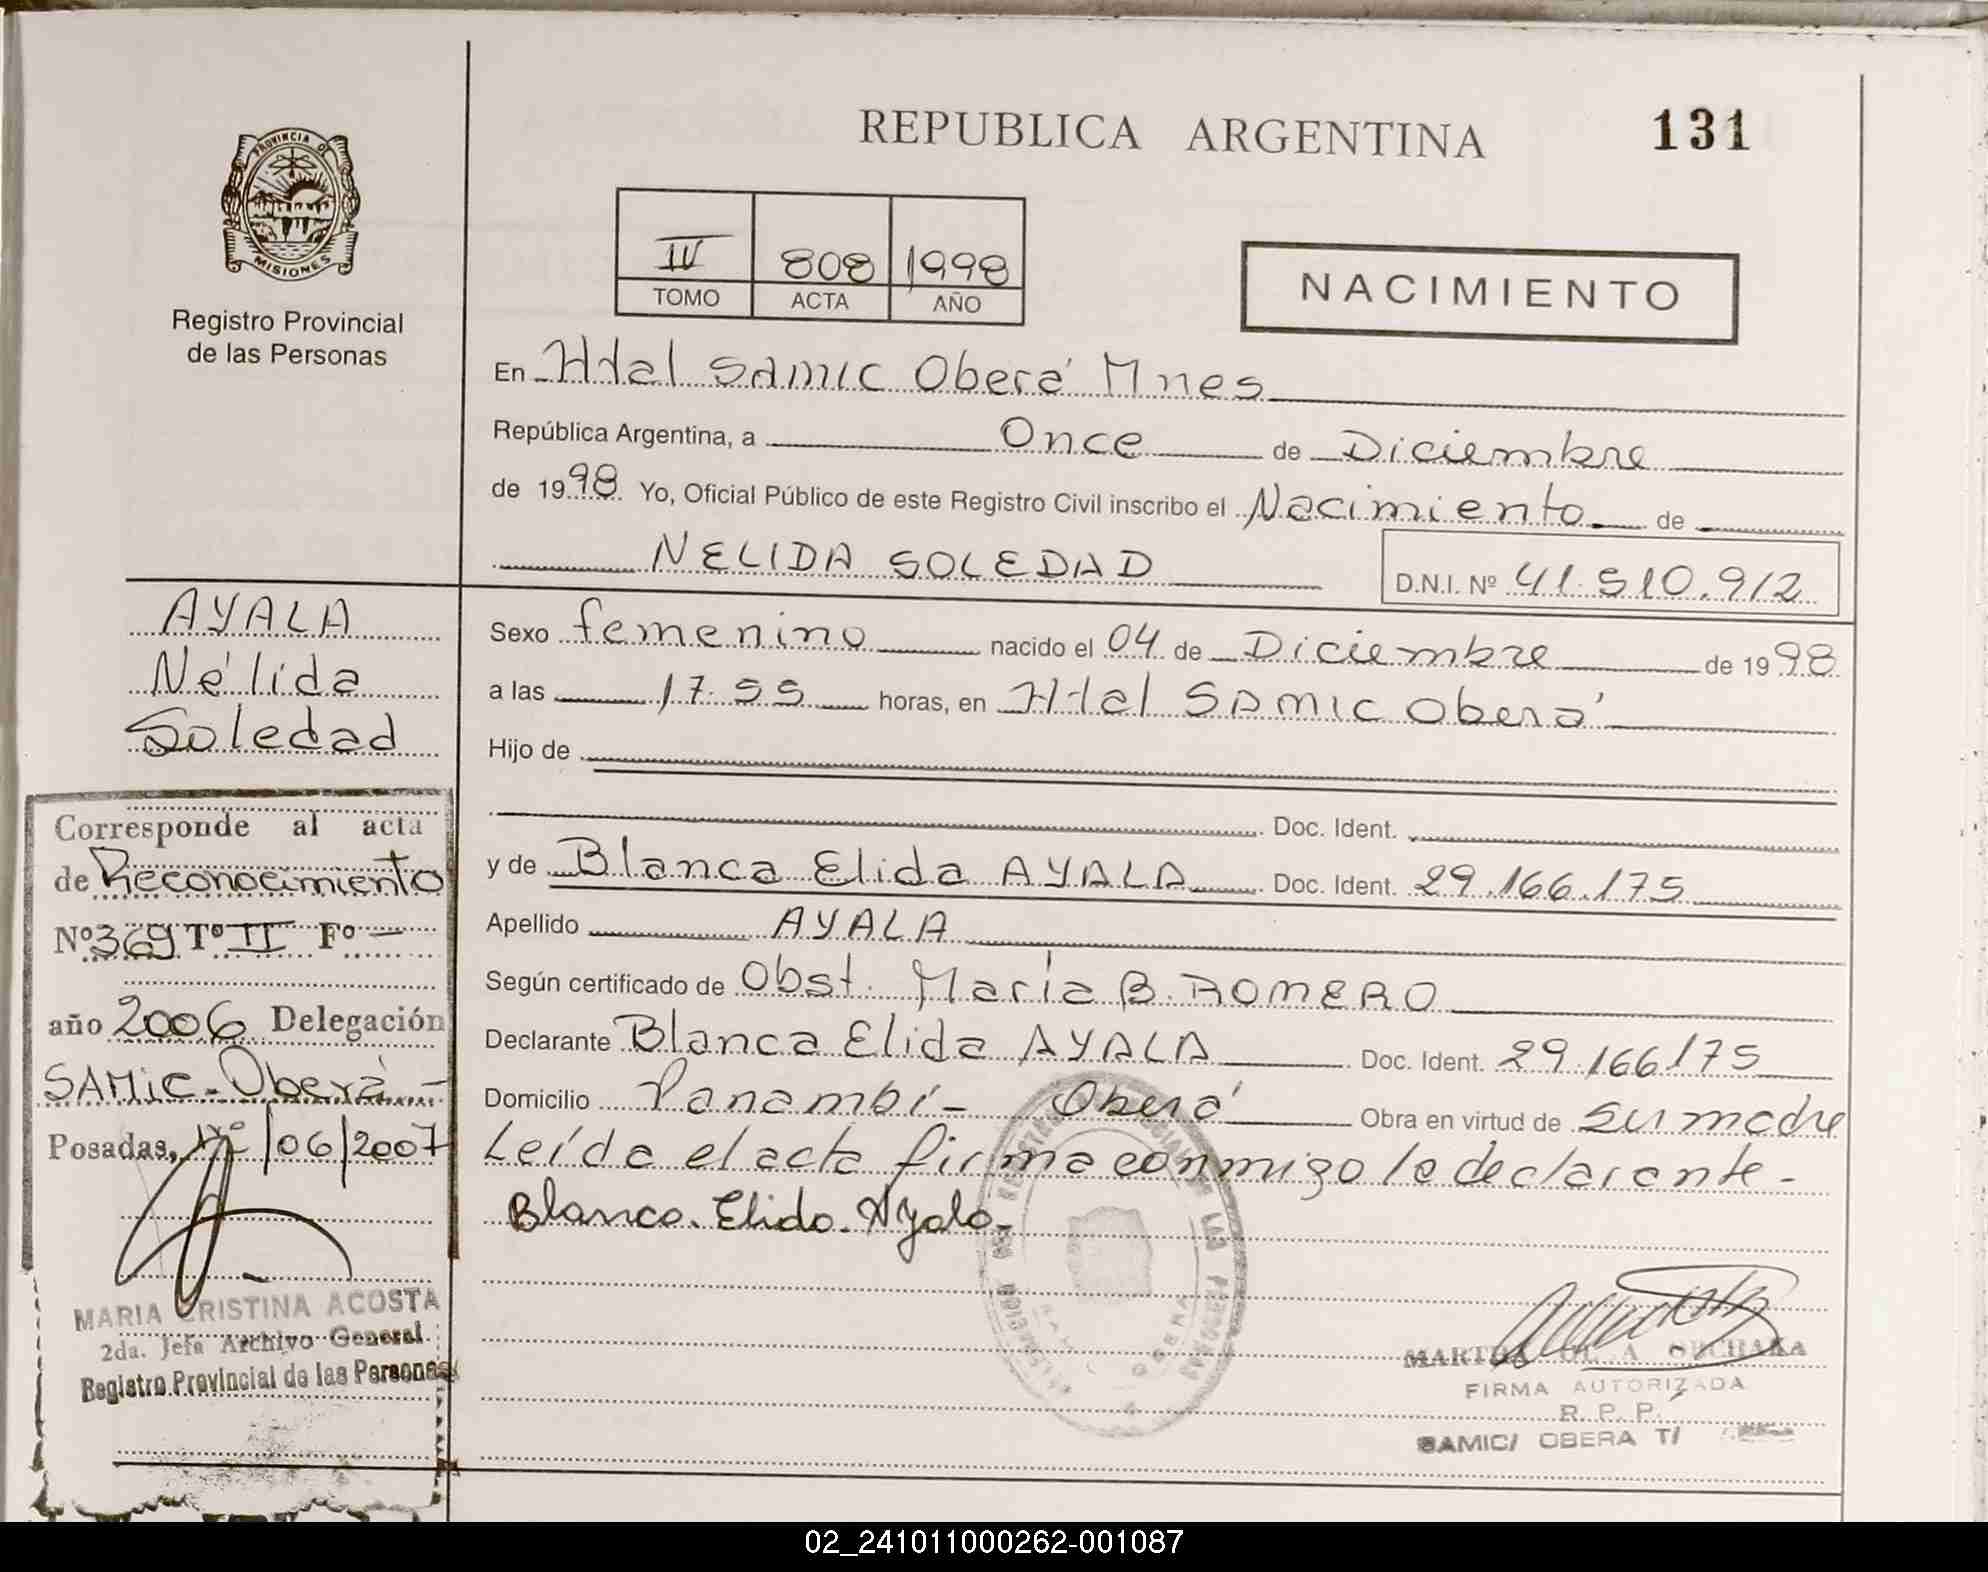 REPUBLICA ARGENTINA
131
PROVINCIA DE
MISIONES
Registro Provincial
de las Personas
IV 808 1998
TOMO ACTA AÑO
NACIMIENTO
En Htal SAMIC Oberá Mnes
República Argentina, a Once de Diciembre
de 1998 Yo, Oficial Público de este Registro Civil inscribo el Nacimiento de
NELIDA SOLEDAD
D.N.I. Nº 41.510.912
AYALA
Nélida
Soledad
Sexo femenino nacido el 04 de Diciembre de 1998
a las 17.55 horas, en Htal SAMIC Oberá
Hijo de
Doc. Ident.
y de Blanca Elida AYALA Doc. Ident. 29.166.175
Apellido AYALA
Según certificado de Obst. María B. ROMERO
Declarante Blanca Elida AYALA Doc. Ident. 29.166175
Domicilio Panambí - Oberá Obra en virtud de su madre
Leída el acta firma conmigo la declarante -
Blanca. Elida. Ayala
Corresponde al acta
de Reconocimiento
Nº 369 Tº II Fº -
año 2006 Delegación
SAMIC - Oberá -
Posadas, /06/2007
MARIA CRISTINA ACOSTA
2da. Jefa Archivo General
Registro Provincial de las Personas
FIRMA AUTORIZADA
R. P. P.
SAMIC/ OBERA T/
02_241011000262-001087